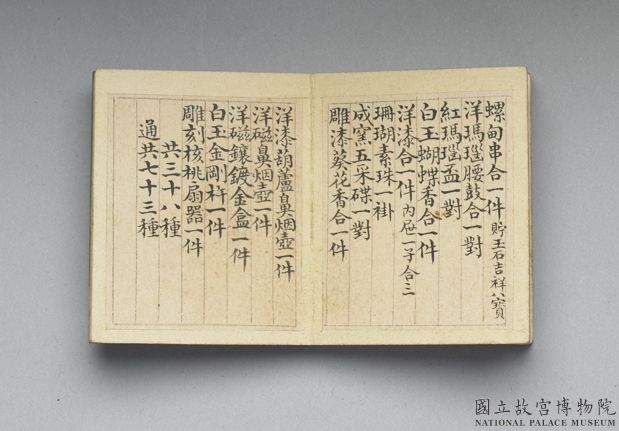 螺甸串合一件 貯玉石吉祥八寶
洋瑪瑙腰鼓合一對
紅瑪瑙盃一對
白玉蝴蝶香合一件
洋漆合一件 內屜一子合三
珊瑚素珠一掛
成窯五采碟一對
雕漆葵花香合一件
洋漆葫蘆鼻烟壺一件
洋磁鼻烟壺一件
洋磁鑲鍍金盒一件
白玉金剛杵一件
雕刻核桃扇器一件
共三十八種
通共七十三種
國立故宮博物院
NATIONAL PALACE MUSEUM